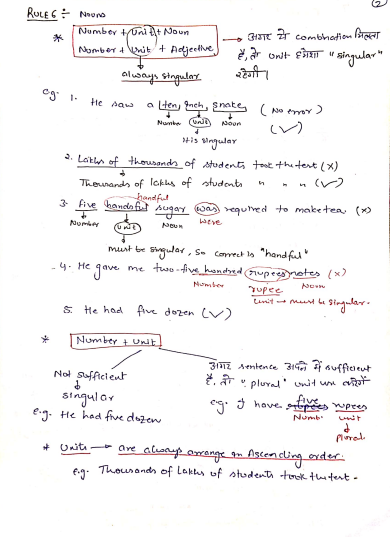 (2)
RULE 6 ÷ Nouns
* Number + Unit + Noun
Number + Unit + Adjective
→ अगर ये combination मिलता
है, तो unit हमेशा "singular"
रहेगी।
always singular
eg. 1. He saw a ten, inch, snake (No error)
Number Unit Noun (✓)
It is singular
2. Lakhs of thousands of students took the test (x)
Thousands of lakhs of students " " " (✓)
handful
3. Five handsful sugar was required to make tea (x)
Number Unit Noun were
must be singular, so correct is "handful"
4. He gave me two five hundred rupees notes (x)
Number rupee Noun
unit → must be singular.
5. He had five dozen (✓)
* Number + Unit
Not sufficient
singular
e.g. He had five dozen
अगर sentence अपने में sufficient
है, तो "plural" unit use करेंगे
five
eg. I have rupees rupees
Numb. unit
plural
* Units → are always arrange in Ascending order.
e.g. Thousands of lakhs of students took the test.